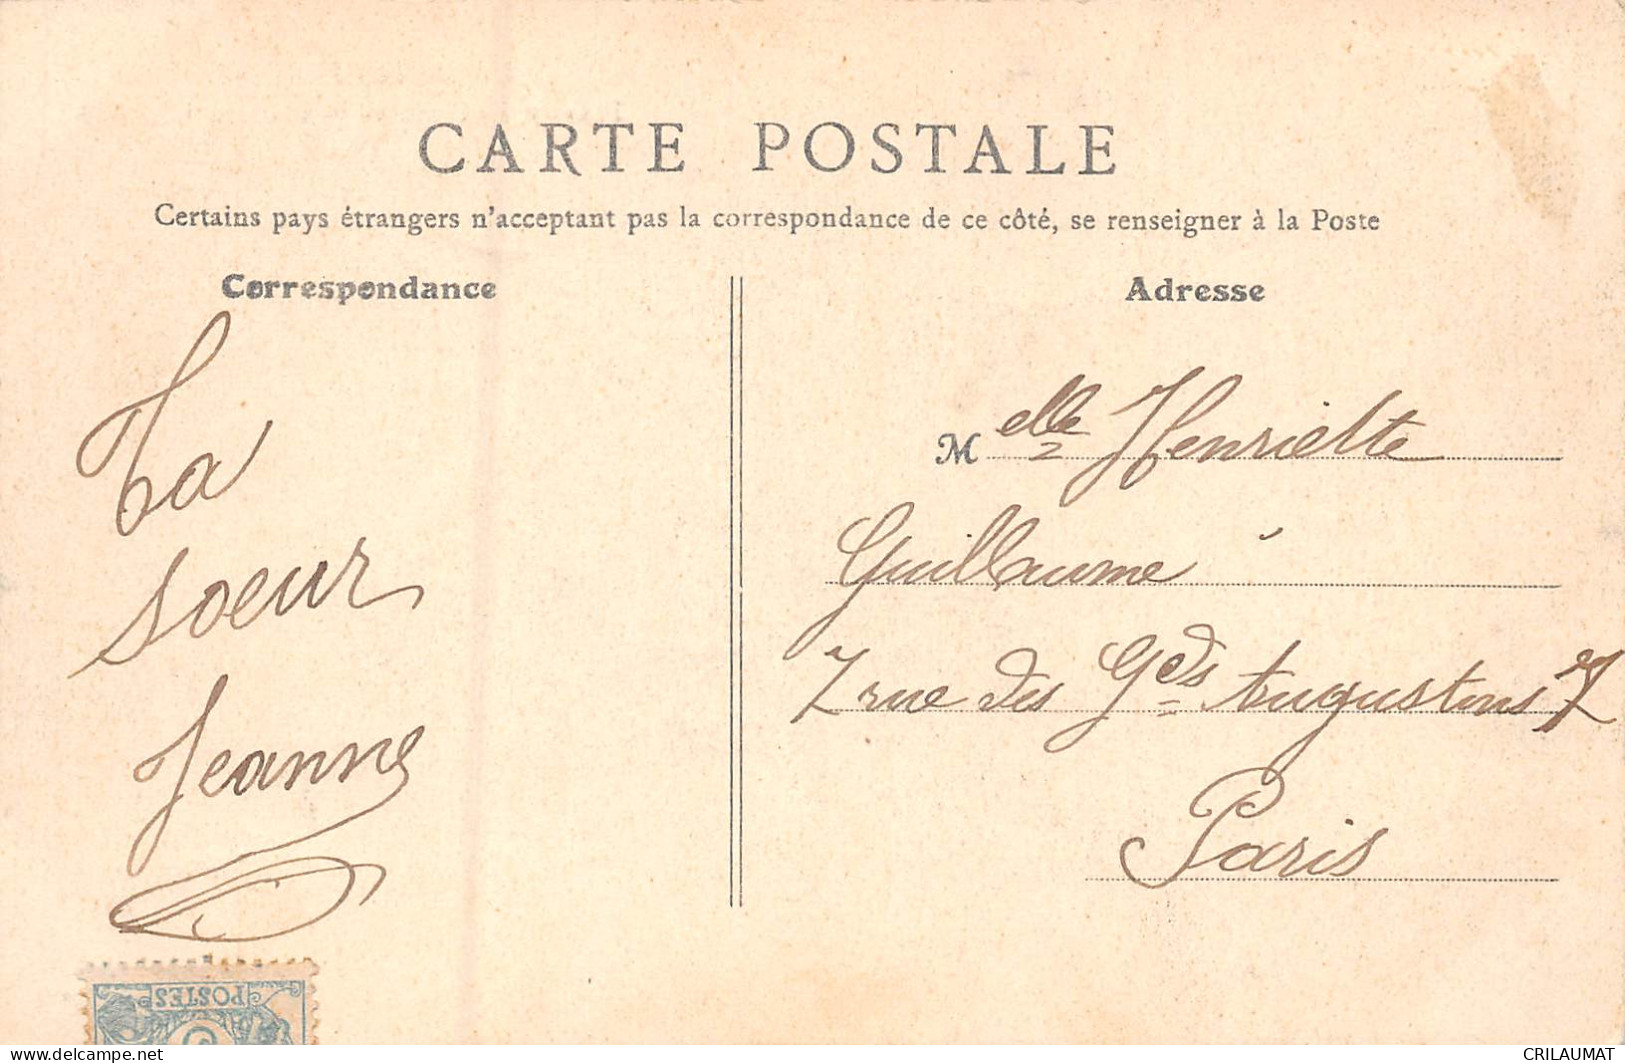 CARTE POSTALE
Certains pays étrangers n'acceptant pas la correspondance de ce côté, se renseigner à la Poste
Correspondance
Adresse
Ta
soeur
Jeanne
Melle Henriette
Guillaume
7 rue des Gds Augustins 7
Paris
POSTES
delcampe.net
CRILAUMAT